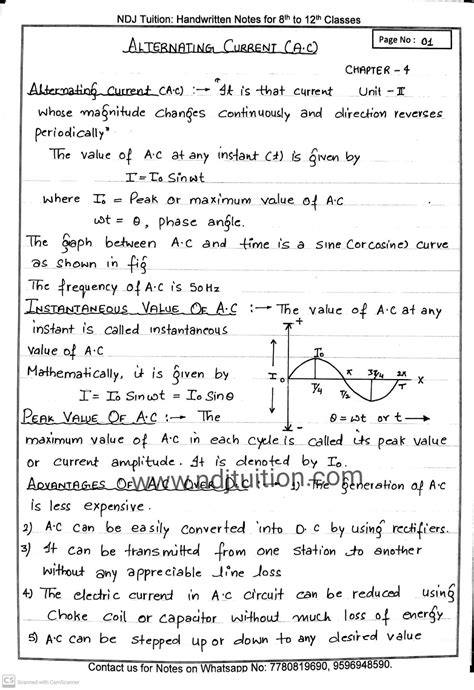 NDJ Tuition: Handwritten Notes for 8th to 12th Classes
Page No: 01
ALTERNATING CURRENT (A.C)
CHAPTER - 4
Alternating Current (A.C) :→ "It is that current Unit - II
whose magnitude changes continuously and direction reverses
periodically"
The value of A.C at any instant (t) is given by
I = I₀ Sinωt
where I₀ = Peak or maximum value of A.C
ωt = θ, phase angle.
The graph between A.C and time is a sine (or cosine) curve
as shown in fig
The frequency of A.C is 50Hz
INSTANTANEOUS VALUE OF A.C :→ The value of A.C at any
instant is called instantaneous
value of A.C
Mathematically, it is given by
I = I₀ Sinωt = I₀ Sinθ
+
I₀
I 0
T/4 T/2 π 3T/4 2π T X
-
θ = ωt or t →
PEAK VALUE OF A.C :→ The
maximum value of A.C in each cycle is called its peak value
or current amplitude. It is denoted by I₀.
www.ndjtuition.com
ADVANTAGES OF A/C OVER D.C :→ 1) The generation of A.C
is less expensive.
2) A.C can be easily converted into D.C by using rectifiers.
3) It can be transmitted from one station to another
without any appreciable line loss
4) The electric current in A.C circuit can be reduced using
Choke coil or capacitor without much loss of energy
5) A.C can be stepped up or down to any desired value
Contact us for Notes on Whatsapp No: 7780819690, 9596948590.
CS Scanned with CamScanner